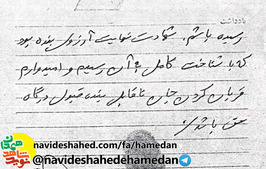 یادداشت
رسیده باشم. شهادت نهایت آرزوی بنده بود
که با شناخت کامل به آن رسیدم و امیدوارم
قربان کردن جان ناقابل بنده قبول درگاه
حق باشد
navideshahed.com/fa/hamedan
@navideshahedehamedan